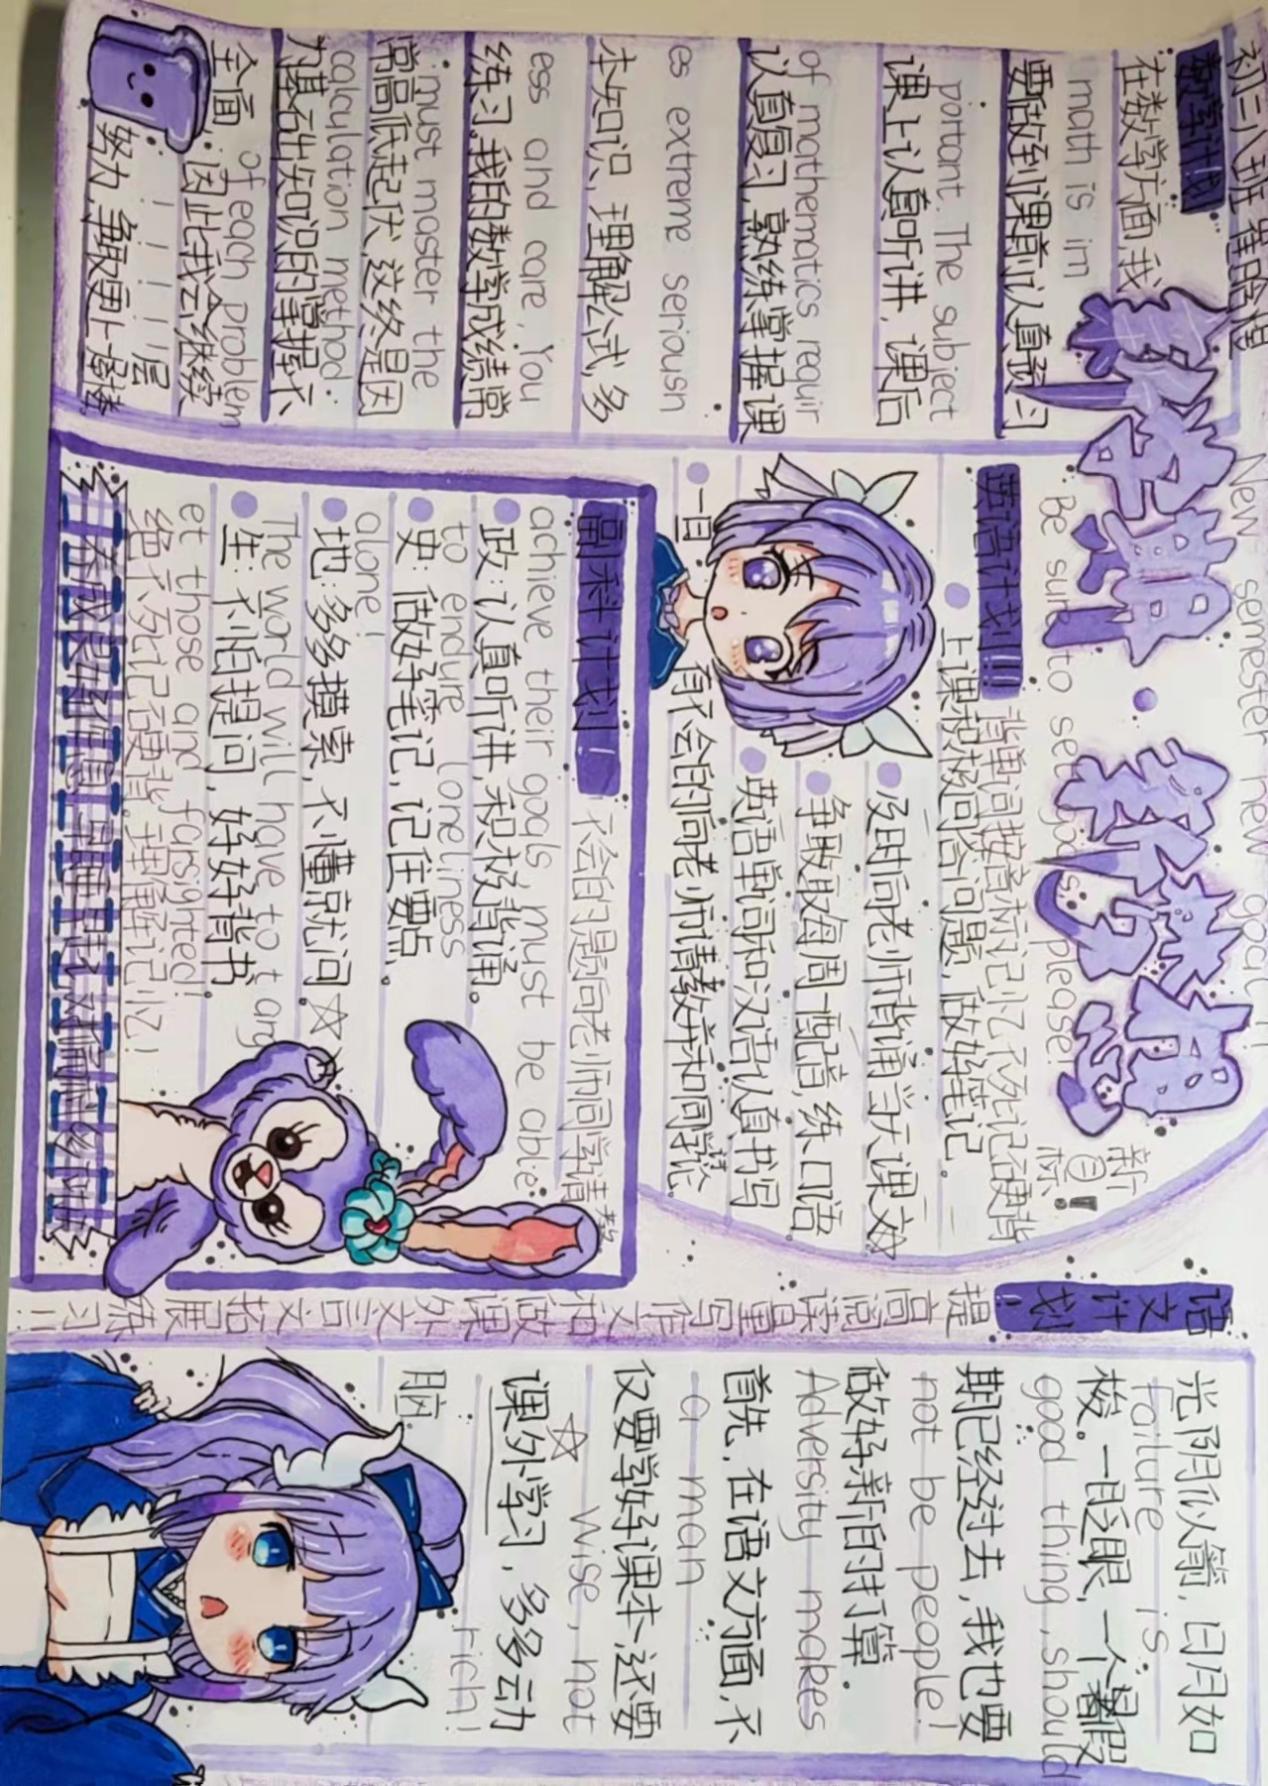 初三八班
New semester new goal!!
Be sure to set goals please!
新目标!
数学计划
在数学方面我
math is im
要做到课前认真预习
portant. The subject
课上认真听讲, 课后
of mathematics requir
认真复习, 熟练掌握课
es extreme seriousn
本知识, 理解公式, 多
ess and care. You
练习。我的数学成绩常
must master the
常高低起伏, 这终是因
calculation method
为基础知识的掌握不
of each problem
全面, 因此我会继续
努力, 争取更上一层楼
英语计划!!
背单词按音标记忆不死记硬背
上课积极回答问题, 做好笔记。
及时向老师背诵当天课文
争取每周一配音, 练口语
英语单词和汉语认真书写
有不会的问老师请教并和同学讨论。
副科计划!
不会的题向老师同学请教
achieve their goals must be able
政: 认真听讲, 积极背诵。
to endure loneliness
史: 做好笔记, 记住要点。
alone!
地: 多多摸索, 不懂就问
The world will have to targ
生: 不怕提问, 好好背书。
et those and farsighted!
绝不死记硬背。理解记忆!
语文计划!
提高阅读量写作文和做课外文言文拓展练习!!
光阴似箭, 日月如
failure is.
梭。一眨眼, 一个暑假
good thing, should
期已经过去, 我也要
not be people!
做好新的打算。
Adversity makes
首先, 在语文方面, 不
a man
仅要学好课本, 还要
wise, not
课外学习, 多多动
rich!
脑。